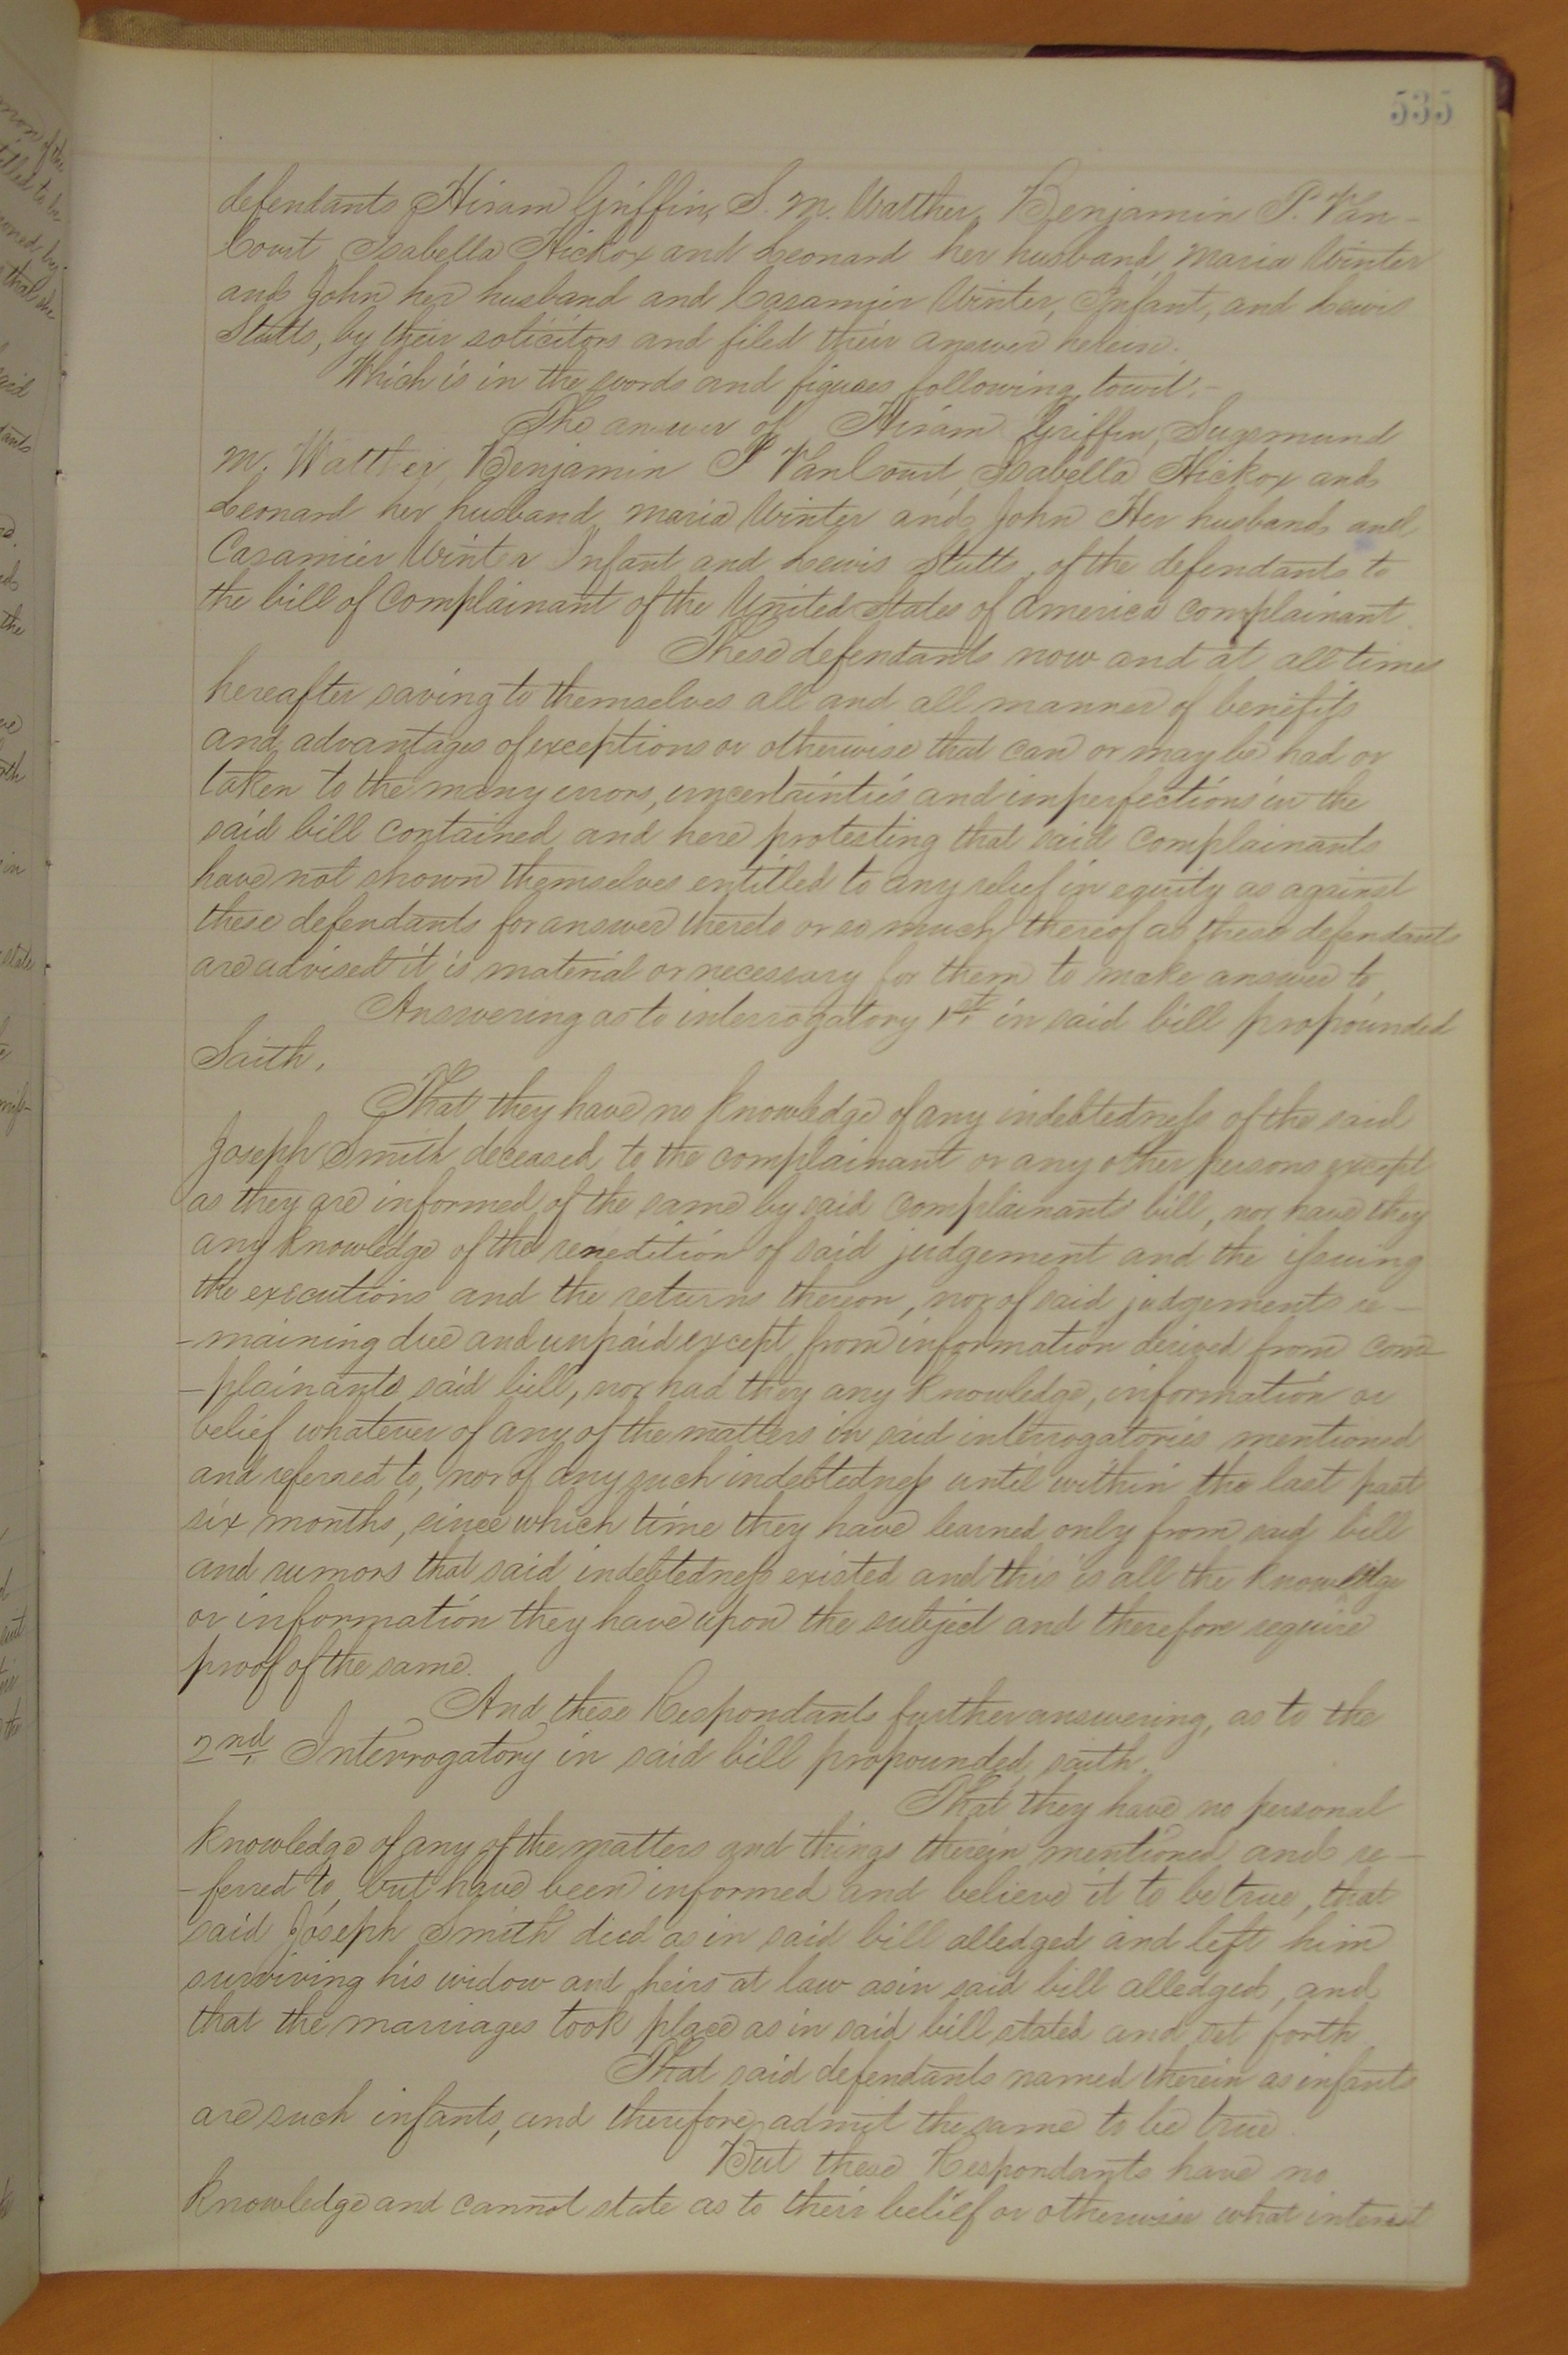 535
defendants Hiram Griffin, S. M. Walther, Benjamin P. Van-
Court Isabella Hickox and Leonard her husband, Maria Winter
and John her husband and Casamier Winter, Infant, and Lewis
Stutts, by their solicitors and filed their answer herein.
Which is in the words and figures following, towit:-
The answer of Hiram Griffin, Sugemund
M. Walther, Benjamin P VanCourt, Isabella Hickox and
Leonard her husband Maria Winter and John Her husband and
Casamier Winter Infant and Lewis Stutts, of the defendants to
the bill of Complainant of the United States of America complainant.
These defendants now and at all times
hereafter saving to themselves all and all manner of benefits
and advantages of exceptions or otherwise that can or may be had or
taken to the many errors, uncertainties and imperfections in the
said bill contained and here protesting that said complainants
have not shown themselves entitled to any relief in equity as against
these defendants for answer thereto or so much thereof as these defendants
are advised it is material or necessary for them to make answer to,
Answering as to interrogatory 1st in said bill propounded
Saith,
That they have no knowledge of any indebtedness of the said
Joseph Smith deceased, to the complainant or any other persons except
as they are informed of the same by said complainants bill, nor have they
any knowledge of the renedition of said judgement and the issuing
the executions and the returns thereon, nor of said judgements re-
-maining due and unpaid except from information derived from com-
-plainants said bill, nor had they any knowledge, information or
belief whatever of any of the matters in said interrogatories mentioned
and referred to, nor of any such indebtedness until within the last past
six months, since which time they have learned only from said bill
and rumors that said indebtedness existed and this is all the knowledge
or information they have upon the subject and therefore require
proof of the same.
And these Respondants further answering, as to the
2nd. Interrogatory in said bill propounded, saith.
That they have no personal
knowledge of any of the matters and things therein mentioned and re-
-ferred to, but have been informed and believe it to be true, that
said Joseph Smith died as in said bill alledged and left him
surviving his widow and heirs at law as in said bill alledged, and
that the marriages took place as in said bill stated and set forth
That said defendants named therein as infants
are such infants, and therefore admit the same to be true.
But these Respondants have no
knowledge and cannot state as to their belief or otherwise what interest